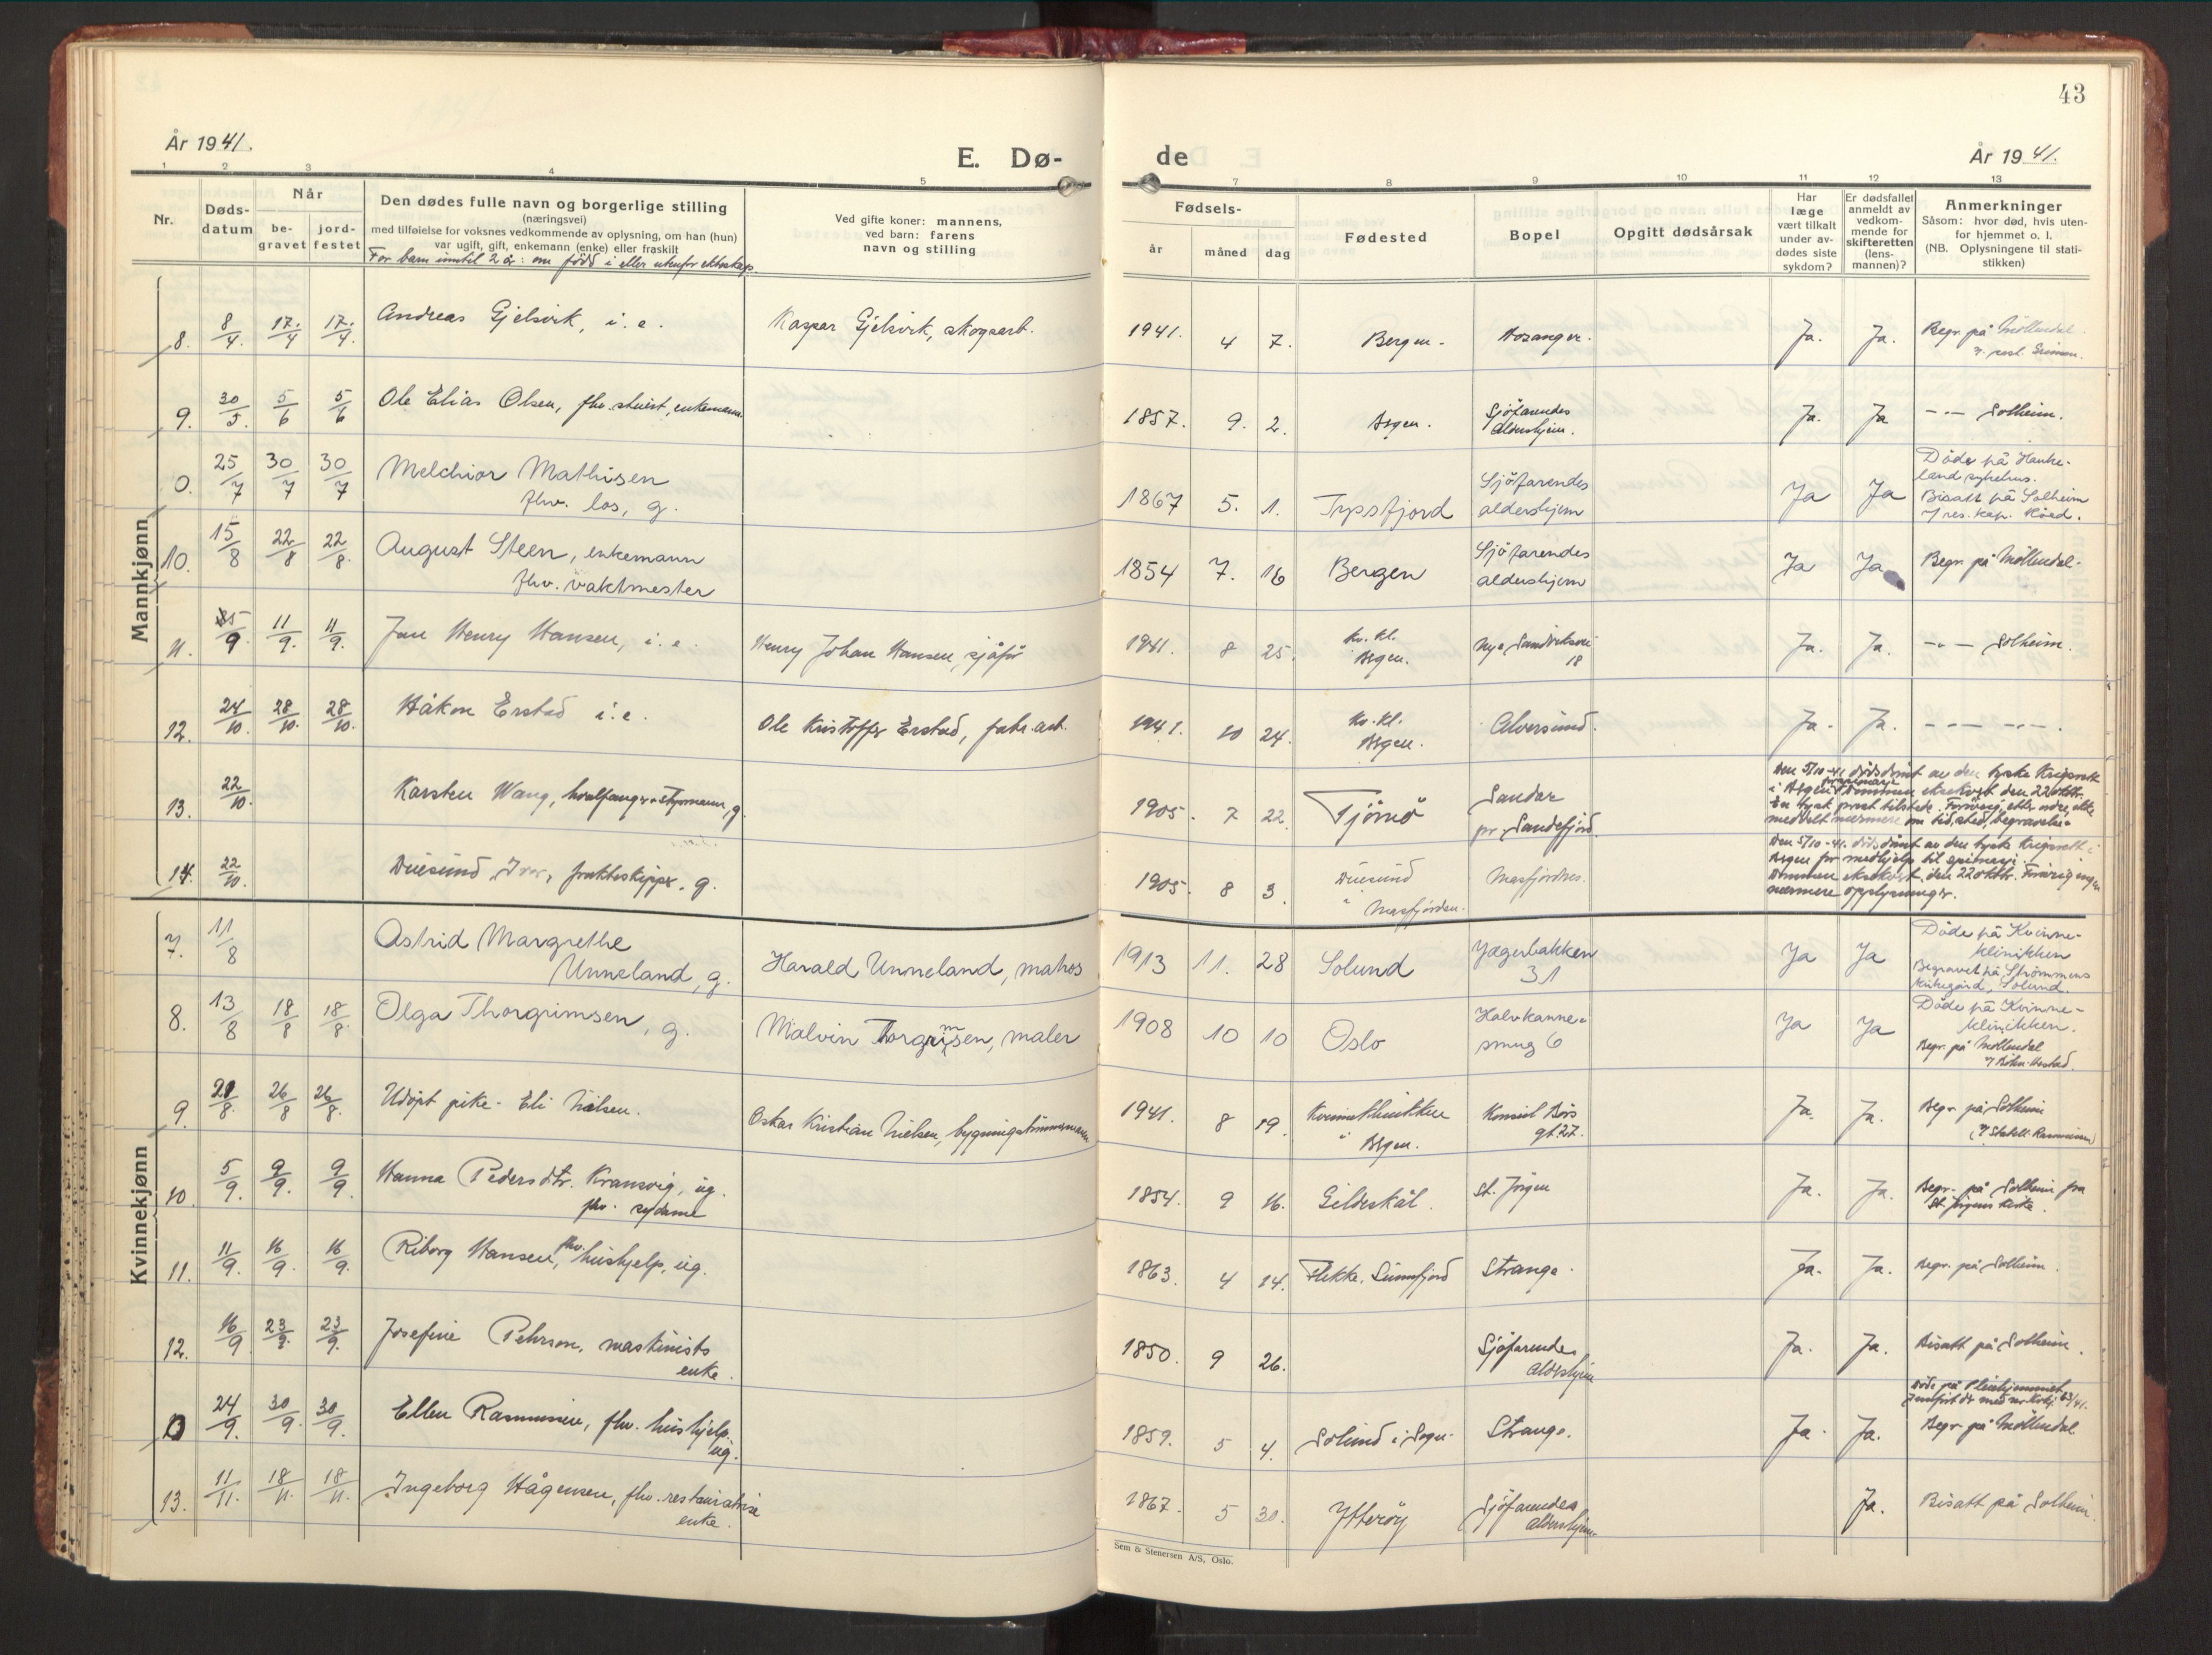 43
År 1941.
E. Dø-
de
År 1941.
1 2 3 4 5 7 8 9 10 11 12 13
Nr.
Døds-
datum
Når
be-
gravet
jord-
festet
Den dødes fulle navn og borgerlige stilling
(næringsvei)
med tilføielse for voksnes vedkommende av oplysning, om han (hun)
var ugift, gift, enkemann (enke) eller fraskilt
For barn inntil 2 år: om född i eller utenfor ekteskap.
Ved gifte koner: mannens,
ved barn: farens
navn og stilling
Fødsels-
år måned dag
Fødested
Bopel
Opgitt dødsårsak
Har
læge
vært tilkalt
under av-
dødes siste
sykdom?
Er dødsfallet
anmeldt av
vedkom-
mende for
skifteretten
(lens-
mannen)?
Anmerkninger
Såsom: hvor død, hvis uten-
for hjemmet o. l.
(NB. Oplysningene til stati-
stikken)
Mannkjønn
8. 8/4. 17./4 17./4. Andreas Gjelsvik, i. e. Kaspar Gjelsvik, skogsarb. 1941. 4 7. Bergen. Hosanger. Ja. Ja. Begr. på Möllendal
9. 30/5. 5/6 5/6 Ole Elias Olsen, fhv. stuert, enkemann. 1857. 9. 2. Bergen. Sjöfarendes
aldershjem. Ja. Ja -"- Solheim.
0. 25/7 30/7 30/7 Melchior Mathisen
fhv. los, g. 1867 5. 1. Trysfjord Sjöfarendes
aldershjem Ja Ja Döde på Hauke-
land sykehus.
Bisatt på Solheim
v/ res. kap. Höed.
10. 15/8 22/8 22/8. August Steen, enkemann
fhv. vaktmester 1854 7. 16 Bergen Sjöfarendes
aldershjem Ja Ja Begr. på Möllendal.
11. 5/9 11/9. 11/9. Jan Henry Hansen, i. e. Henry Johan Hansen, sjåfør 1941. 8 25. Kv. kl.
Bergen. Nye Sandviksvei
18 Ja. Ja. -"- Solheim.
12. 24/10. 28/10. 28/10. Håkon Erstad i. e. Ole Kristoffer Erstad, fabr. arb. 1941. 10 24. Kv. kl.
Bergen. Alversund. Ja. Ja. -"- -"-.
13. 22/10. Karsten Wang, hvalfanger-styrmann, g. 1905. 7 22. Tjömö Sandar
pr. Sandefjord. Den 5/10-41 dödsdömt av den tyske Krigsrett
i Bergen. Dommen eksekvert den 22 oktbr.
En tysk prest tilstede. Forövrig, etter ordre, ikke
meddelt nærmere om tid, sted, begravelse.
14. 22/10. Duesund, Ivar, fraktskipper. g. 1905. 8 3. Duesund
i Masfjorden. Masfjordnes. Den 5/10-41. dödsdömt av den tyske Krigsrett i
Bergen for medhjelp til spionasji.
Dommen eksekvert den 22 oktbr. Forövrig ingen
nærmere opplysninger.
Kvinnekjønn
7. 11/8 Astrid Margrethe
Unneland, g. Harald Unneland, matros 1913 11. 28 Solund Jægerbakken
31 Ja Ja Döde på Kvinne-
klinikken
Begravet på Strömmens
kirkegård, Solund.
8. 13/8 18/8 18/8. Olga Thorgrimsen, g. Malvin Thorgrimsen, maler 1908 10 10 Oslo Halvkanne-
smug 6 Ja Ja Döde på Kvinne-
klinikken.
Begr. på Möllendal
9 21/8. 26/8 26/8. Udöpt pike. Eli Nielsen. Oskar Kristian Nielsen, bygningstömmermann 1941. 8 19. Kvinneklinikken
i Bergen. Konsul Börs
gt. 27. Ja. Ja. Begr. på Solheim
10 5/9. 9/9. 9/9. Hanna Pedersdtr. Kransvig, ug.
fhv. sydame 1854. 9 16. Gildeskål. St. Jörgen Ja. Ja. Begr. på Solheim fra
St. Jörgens kirke.
11. 11/9. 16/9. 16/9. Riborg Hansen, fhv. hushjelp, ug. 1863. 4 14. Flekke, Sunnfjord Strange. Ja. Ja. Begr. på Solheim.
12. 16/9 23/9. 23/9. Josefine Pehrson, maskinists
enke. 1850. 9 26. Sjöfarendes
aldershjem Ja. Ja. Bisatt på Solheim.
0 24/9. 30/9. 30/9. Ellen Rasmussen, fhv. hushjelp,
ug. 1859. 5 4. Solund i Sogn. Strange. Ja. Ja. Döde på Pleiehjemmet
Begr. på Möllendal
13. 11/11. 18/11. 18/11. Ingeborg Hågensen, fhv. restauratrise
enke. 1867. 5 30. Ytteröy Sjöfarendes
aldershjem. Ja. Bisatt på Solheim.
Sem & Stenersen A/S, Oslo.